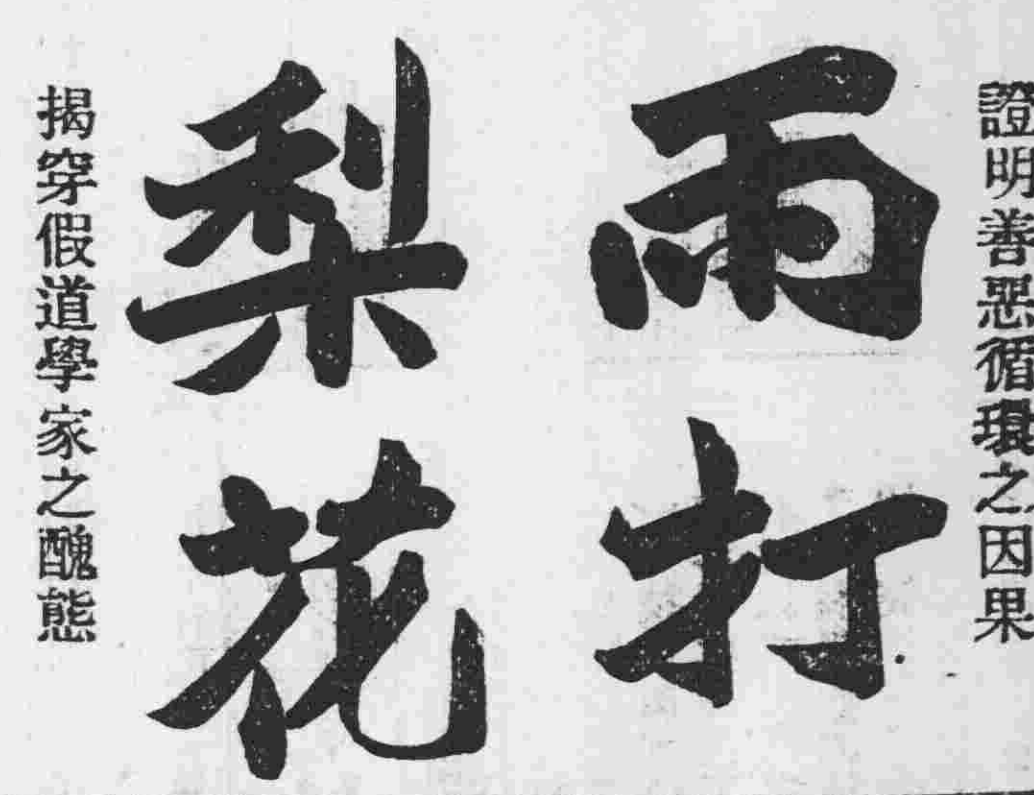 證明善惡循環之因果
雨打
梨花
揭穿假道學家之醜態